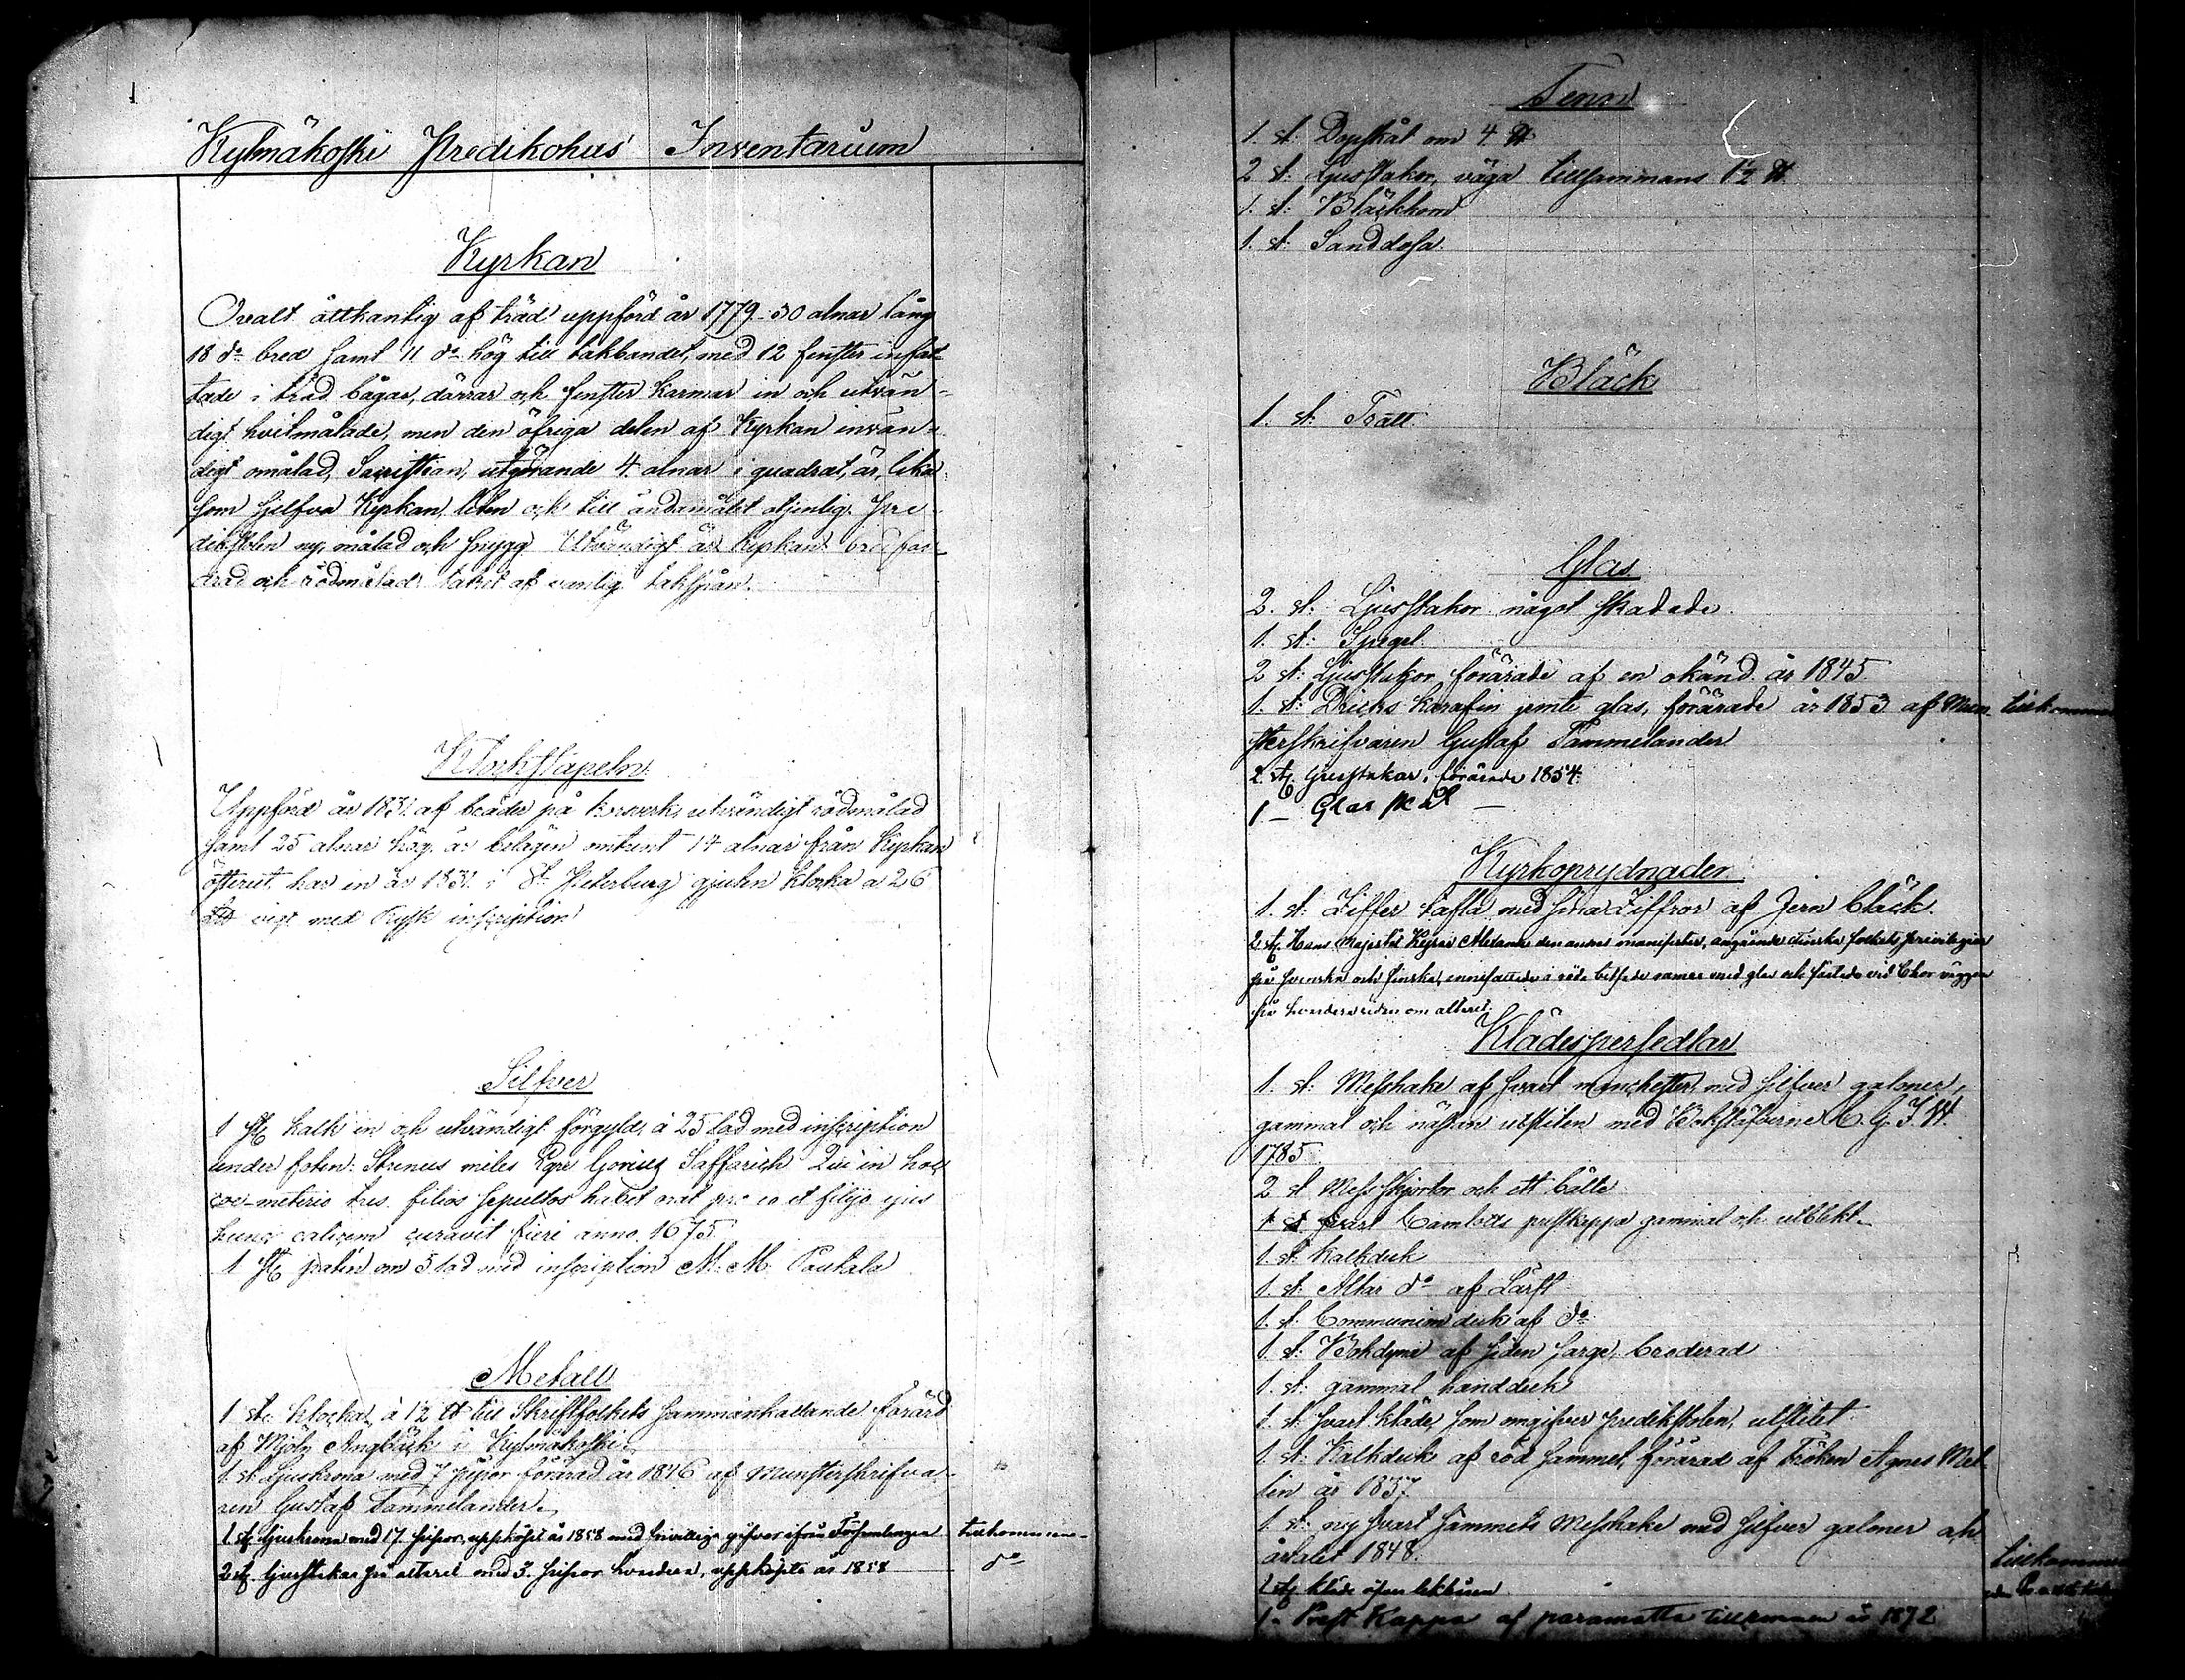 Kylmäkoski Predikohus Inventarium
Kyrkan
Ovalt åttkantig af träd uppförd år 1779 - 30 alnar lång
18 do bred samt 11 do hög till takbandet, med 12 fenster infat-
tade i träd bågar, dörrar och fenster karmar in och utvän-
digt hvitmålade, men den öfriga delen af Kyrkan invän-
digt omålad, Sacristian, utgörande 4 alnar i quadrat, är, lika
som sjelfva Kyrkan, liten och till ändamålet otjenlig. Pre-
dikstolen ny, målad och snygg Utvändigt är Kyrkan brädfor-
drad och rödmålad taket af vanlig takspån.
Klockstapeln
Uppförd år 1831 af bräder på korsverk, utvändigt rödmålad
samt 25 alnar hög, är belägen omkrent 14 alnar från Kyrkan
österut. har en år 1831 i St Peterburg gjuten klocka a 26
vigt med Rysk inscription
Silfver
1 st kalk in och utvändigt förgyld, à 25 lod med inscription
under foten: Strenus miles Eqre Saffarich Qui in hoc
coe-meterio tres filios sepultos habet orat pro eo et filjo ejus
hunc calicem curavit fieri anno 1675.
1 st patin om 5 lod med inscription M. M. Pautala
Metall
1 st: klocka, à 1½ ℔ till Skriftfolkets sammankallande förärd
af Mjöln Ängbäck i Kylmäkoski.
1 st Ljuskrona med 7 pipor förärad år 1846 af Munsterskrifva-
ren Gustaf Tammelander.
1 st Ljuskrona med 17 pipor, uppköpt år 1858 med frivilliga gåfvor ifrån Församlingen tillkommen-
2 st ljusstakar på alteret med 3 pipor hvardera, uppköpta år 1858 do
Tenn
1. st: Dopskål om 4 ℔
2 st: Ljusstakor, väga tillsammans 1½ ℔
1. st: Bläckhorn
1. st: Sanddosa.
Bläck
1. st: Tratt.
Glas
2. st: Ljusstakor något skadade.
1. st: Spegel.
2 st: Ljusstakor förärade af en okänd år 1845.
1. st: Dricks karafin jemte glas, förärade år 1853 af Mun-
sterskrifvaren Gustaf Tammelander
2. st ljusstakar, förärade 1854.
1 - Glas
Kyrkoprydnader
1. st: Ziffer tafla med sina Ziffror af Jern bläck.
2 st Hans Majestet Kejsar Alexander den andres manifester, angående finska folkets privilegier
på svenska och finska, innefattade i röda betsade ramar med glas och fästade vid Chor väggen
på hvardera sidan om alteret.
Klädespersedlar
1. st: Messhake af svart manchester, med silfver galoner,
gammal och nästan utsliten med Bokstäfverne C. G. J. W.
1785.
2 st Messskjortor och ett bälte
1 st svart Camlotts prestkappa gammal och utblekt.
1. st: Kalkduk
1. st: Altar do af Lärft
1. st: Communion duk af do
1. st: Bokdyna af siden sarge, broderad
1. st: gammal handduk
1. st: svart kläde, som omgifver predikstolen, utslitet
1. st: Kalkduk af röd sammet, förärad af Fröken Agnes Mel-
lin år 1837.
1. st: ny svart sammets Messhake med silfver galoner och
årtalet 1848.
1 st kläde öfver lektüren tillkommen
1 - Prest Kappa af paramatta tillkommen år 1872